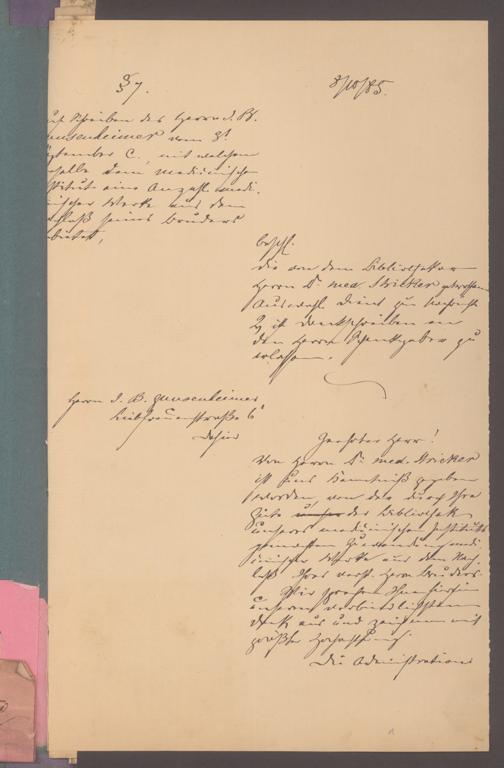 § 7.
8/10/85.
auf Schreiben des Herrn J. B.
vom
September c., mit welchem
dem medicinischen
Institut eine Anzahl medi-
cinischer Werke aus dem
Nachlaß seines Bruders
anbietet,
beschl.
die von dem Bibliothekar
Herrn Dr. med. Stricker getroffene
Auswahl dient zur Nachricht
& ist Dankschreiben an
den Herrn Schenkgeber zu
erlassen.
Herrn J. B.
Liebfrauenstraße 6
Dahier
Geehrter Herr!
Von Herrn Dr. med. Stricker
ist uns Kenntniß gegeben
worden, von der durch Ihre
Güte der Bibliothek
unseres medicinischen Instituts
gemachten Zuwendung medi-
cinischer Werke aus dem Nach-
laß Ihres verst. Herrn Bruders.
Wir sprechen Ihnen hierfür
unseren verbindlichsten
Dank aus und zeichnen mit
größter Hochachtung.
Die Administration